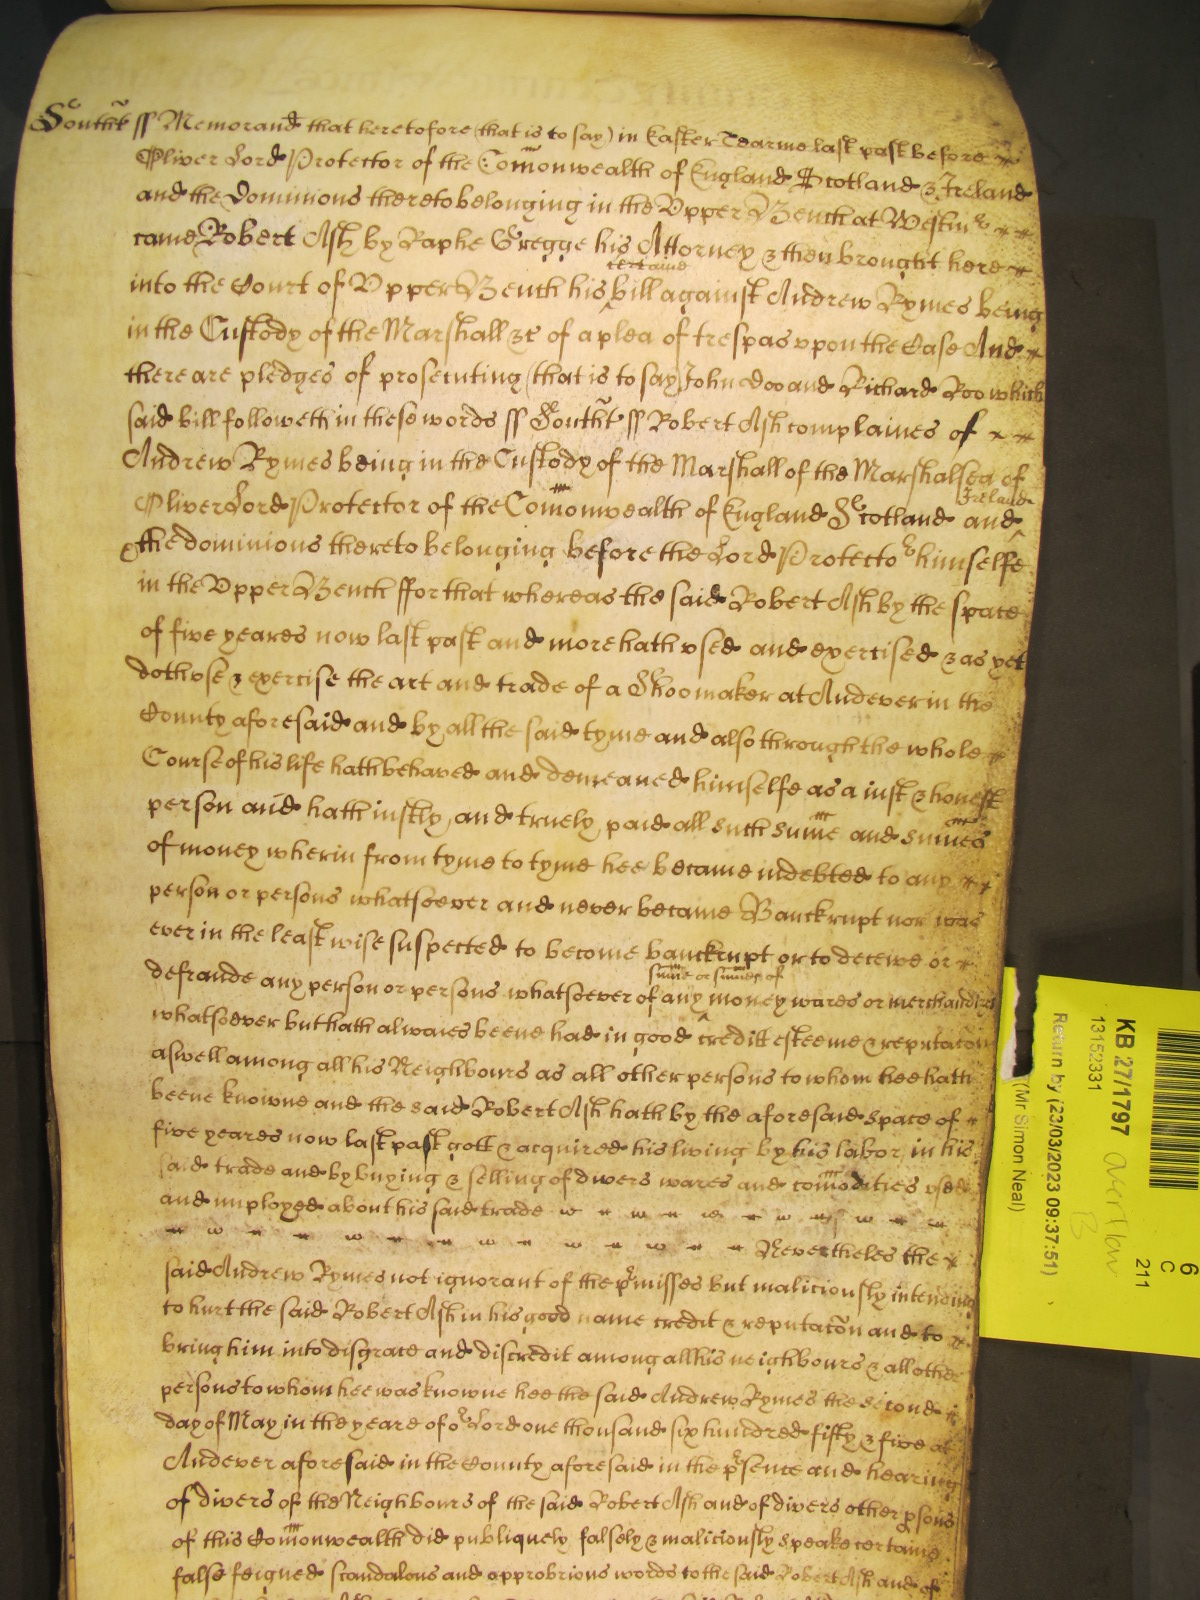 Southt ss Memorand that heretofore (that is to say) in Easter Tearme last past before
Oliver Lord Protector of the Comonwealth of England Scotland & Ireland
and the Dominions thereto belonging in the Upper Bench at Westmr
came Robert Ash by Raphe Gregge his Attorney & then brought here
certaine
into the Court of Upper Bench his ^ bill against Andrew Rymes being
in the Custody of the Marshall &c of a plea of trespas vpon the Case And
there are pledges of prosecuting (that is to say) John Doo and Richard Roo which
said bill followeth in these words ss Southt ss Robert Ash complaines of
Andrew Rymes being in the Custody of the Marshall of the Marshalsea of
Ireland
Oliver Lord Protector of the Comonwealth of England Scotland and ^
& the dominions thereto belonging before the Lord Protector himselfe
in the Upper Bench ffor that whereas the said Robert Ash by the space
of five yeares now last past and more hath vsed and exercised & as yet
doth vse & exercise the art and trade of a Shoomaker at Andever in the
County aforesaid and by all the said tyme and also through the whole
Course of his life hath behaved and demeaned himselfe as a iust & honest
person and hath iustly and truely paid all such sume and sumes
of money wherin from tyme to tyme hee became indebted to any
person or persons whatsoever and never became Banckrupt nor was
ever in the least wise suspected to become banckrupt or to deceive or
sume or sumes of
defraude any person or persons whatsoever of any ^ money wares or merchandizes
whatsoever but hath alwaies beene had in good creditt esteeme & reputacon
aswell among all his Neighbours as all other persons to whom hee hath
beene knowne and the said Robert Ash hath by the aforesaid space of
five yeares now last past gott & acquired his living by his labor in his
said trade and by buying & selling of divers wares and comodities vsed
and imployed about his said trade
Nevertheles the
said Andrew Rymes not ignorant of the pmisses but maliciously intending
to hurt the said Robert Ash in his good name credit & reputacon and to
bring him into disgrace and discredit among all his neighbours & all other
persons to whom hee was knowne hee the said Andrew Rymes the second
day of May in the yeare of or Lord one thousand six hundred fifty & five at
Andever aforesaid in the County aforesaid in the psence and hearing
of divers of the Neighbours of the said Robert Ash and of divers other psons
of this Comonwealth did publiquely falsely & maliciously speake certaine
false feigned scandalous and opprobrious words to the said Robert Ash and of
6
C
211
KB 27/1797
13152331
Return by (23/03/2023 09:37:51)
(Mr Simon Neal)